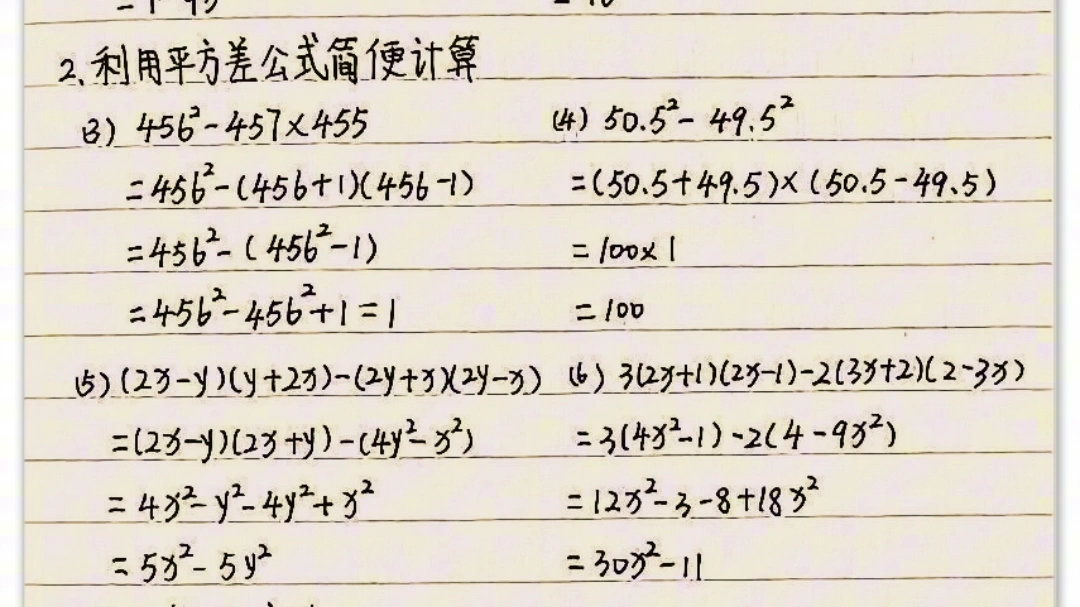 2、利用平方差公式简便计算
(3) 456²-457×455
=456²-(456+1)(456-1)
=456²-(456²-1)
=456²-456²+1=1
(4) 50.5²-49.5²
=(50.5+49.5)×(50.5-49.5)
=100×1
=100
(5) (2x-y)(y+2x)-(2y+x)(2y-x)
=(2x-y)(2x+y)-(4y²-x²)
=4x²-y²-4y²+x²
=5x²-5y²
(6) 3(2x+1)(2x-1)-2(3x+2)(2-3x)
=3(4x²-1)-2(4-9x²)
=12x²-3-8+18x²
=30x²-11